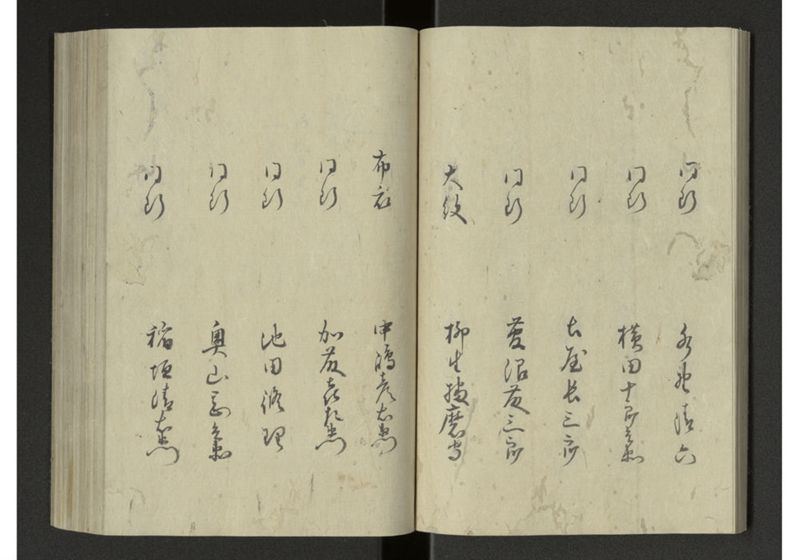 同断 清六
同断 横田十郎兵衛
同断 土屋長三郎
同断 菅沼藤三郎
大紋 柳生播磨守
布衣 中嶋彦右衛門
同断 加藤左衛門
同断 池田修理
同断 奥山兵衛
同断 稲垣清右衛門